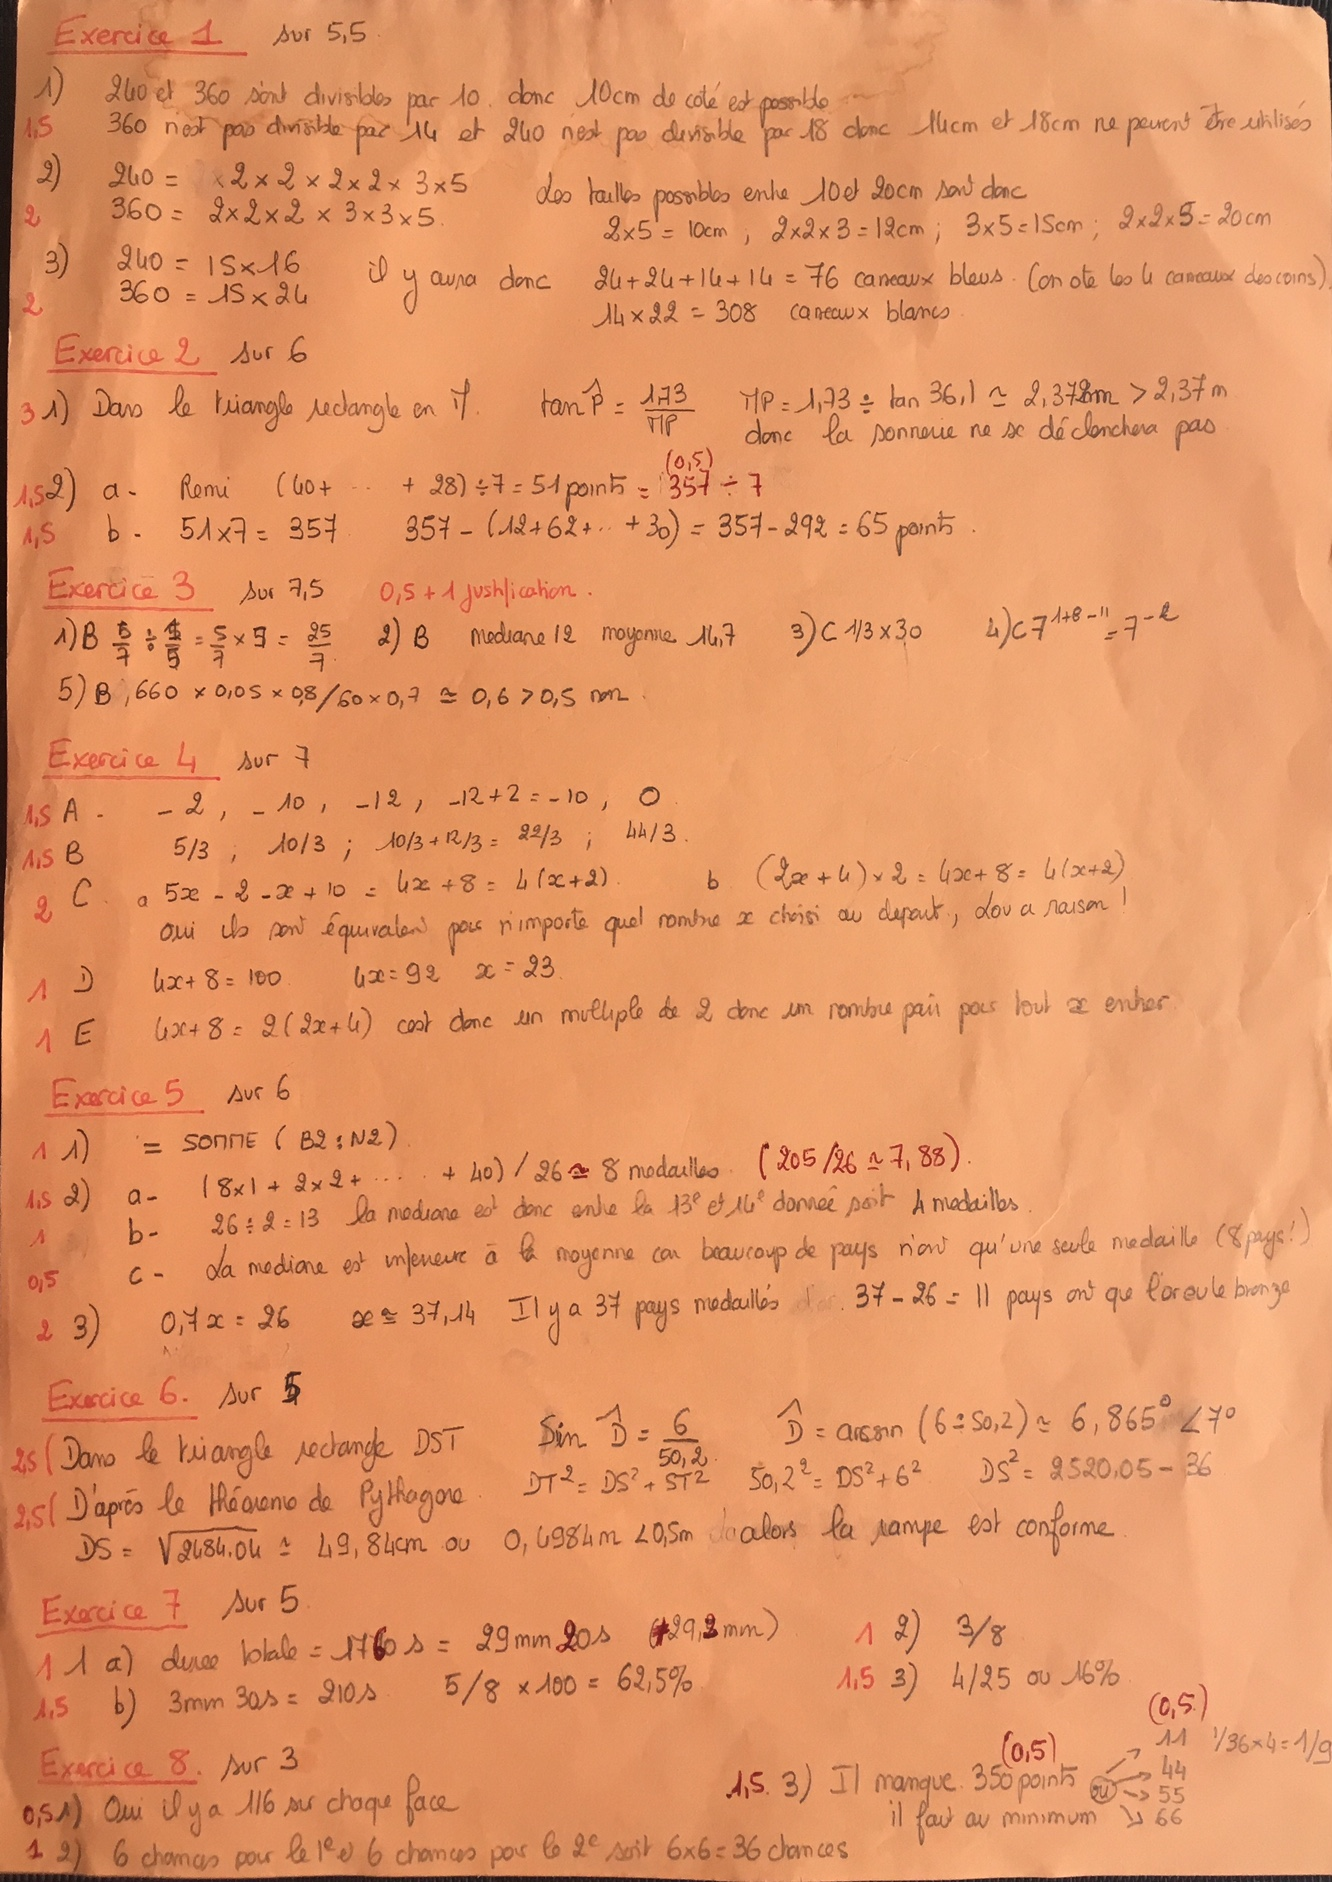 Exercice 1 sur 5,5
1) 240 et 360 sont divisibles par 10. donc 10cm de coté est possible
1,5 360 n'est pas divisible par 14 et 240 n'est pas divisible par 18 donc 14cm et 18cm ne peuvent être utilisés
2) 240 = 2 × 2 × 2 × 2 × 3 × 5 Les tailles possibles entre 10 et 20cm sont donc
2 360 = 2×2×2 × 3×3×5. 2×5 = 10cm ; 2×2×3 = 12cm ; 3×5 = 15cm ; 2×2×5 = 20cm
3) 240 = 15×16 il y aura donc 24+24+14+14 = 76 carreaux bleus. (on ote les 4 carreaux des coins)
2 360 = 15×24 14×22 = 308 carreaux blancs.
Exercice 2 sur 6
3 1) Dans le triangle rectangle en M. tan P̂ = 1,73/MP MP = 1,73 ÷ tan 36,1 ≃ 2,372m > 2,37 m
donc la sonnerie ne se déclenchera pas
1,5 2) a- Remi (40+ ... + 28) ÷ 7 = 51 points = 357 ÷ 7 (0,5)
1,5 b- 51×7 = 357 357 - (12+62+...+30) = 357-292 = 65 points.
Exercice 3 sur 7,5 0,5 + 1 justification.
1) B 5/7 ÷ 1/5 = 5/7 × 5 = 25/7 2) B mediane 12 moyenne 14,7 3) C 1/3×30 4) C 7^1+8-11 = 7^-2
5) B, 660 × 0,05 × 0,8/60×0,7 ≃ 0,6 > 0,5 non.
Exercice 4 sur 7
1,5 A - - 2, - 10, -12, -12+2 = -10, 0
1,5 B 5/3 ; 10/3 ; 10/3+12/3 = 22/3 ; 44/3.
2 C. a 5x - 2 - x + 10 = 4x + 8 = 4(x+2). b (2x+4)×2 = 4x+8 = 4(x+2)
oui ils sont équivalent pour n'importe quel nombre x choisi au depart, Lou a raison !
1 D 4x+8 = 100 4x = 92 x = 23.
1 E 4x+8 = 2(2x+4) cest donc un multiple de 2 donc un nombre pair pour tout x entier
Exercice 5 sur 6
1 1) = SOMME ( B2 : N2 )
1,5 2) a- (8×1 + 2×2 + ... + 40) / 26 ≃ 8 medailles. (205/26 ≃ 7,88).
1 b- 26÷2 = 13 la mediane est donc entre la 13e et 14e donnée soit 4 medailles.
0,5 c - La mediane est inferieure à la moyenne car beaucoup de pays n'ont qu'une seule medaille (8 pays!)
2 3) 0,7x = 26 x ≃ 37,14 Il y a 37 pays medaillés 37 - 26 = 11 pays ont que l'or ou le bronze
Exercice 6. sur 5
2,5 ( Dans le triangle rectangle DST Sin D̂ = 6/50,2 D̂ = arcsin (6÷50,2) ≃ 6,865° < 7°
2,5 ( D'après le théoreme de Pythagore. DT² = DS² + ST² 50,2² = DS² + 6² DS² = 2520,05 - 36
DS = √2484.04 ≃ 49,84cm ou 0,4984m < 0,5m alors la rampe est conforme
Exercice 7 sur 5
1 1 a) duree totale = 1760 s = 29 mm 20s (29,3 mm) 1 2) 3/8
1,5 b) 3mm 30s = 210s 5/8 × 100 = 62,5% 1,5 3) 4/25 ou 16%
Exercice 8. sur 3
0,5 1) Oui il y a 1/6 sur chaque face
1 2) 6 chances pour le 1e et 6 chances pour le 2e soit 6×6 = 36 chances
1,5. 3) Il manque 350 points (0,5)
il faut au minimum
ou
11
44
55
66
(0,5)
1/36×4 = 1/9